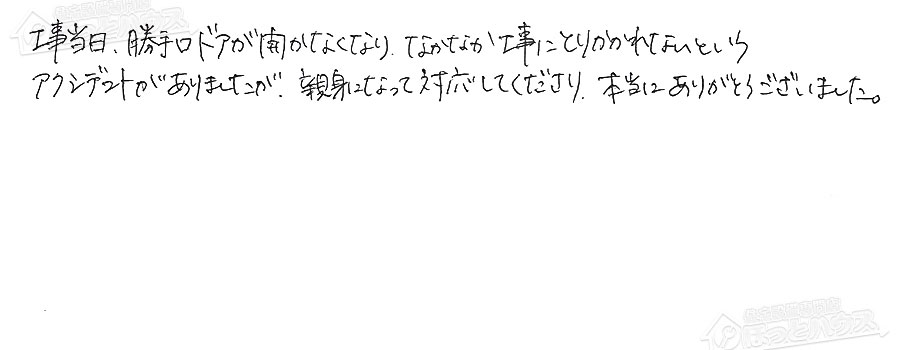 工事当日、勝手口ドアが開かなくなり、なかなか工事にとりかかれないという
アクシデントがありましたが、親身になって対応してくださり、本当にありがとうございました。
ほっとハウス